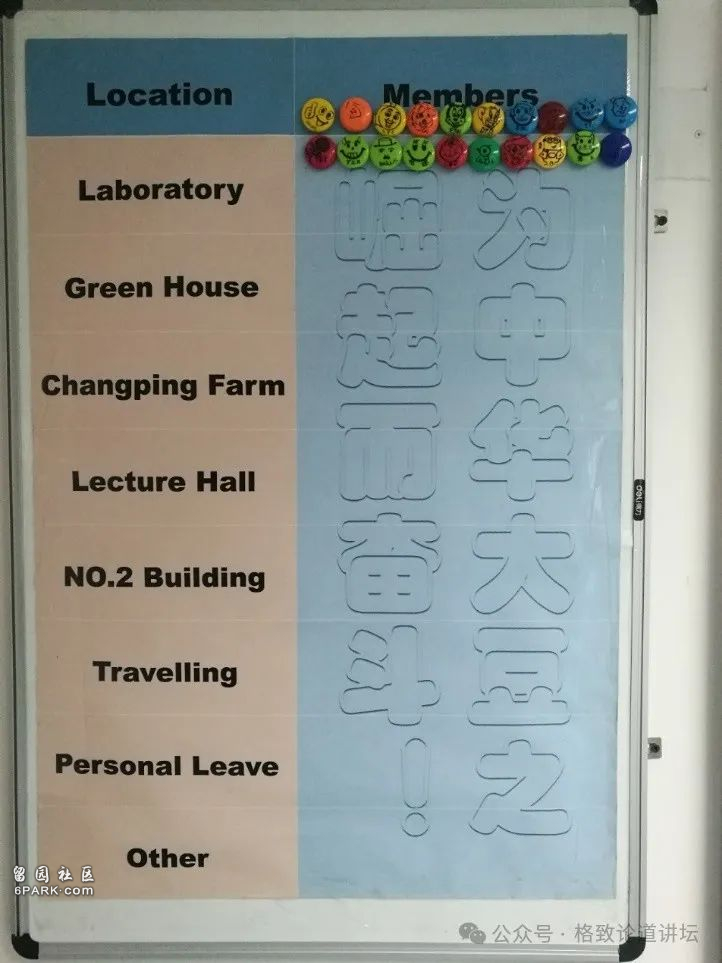 Location
Members
Laboratory
Green House
Changping Farm
Lecture Hall
NO.2 Building
Travelling
Personal Leave
Other
为中华大豆之
崛起而奋斗！
deli得力
留园社区
6PARK.com
公众号·格致论道讲坛